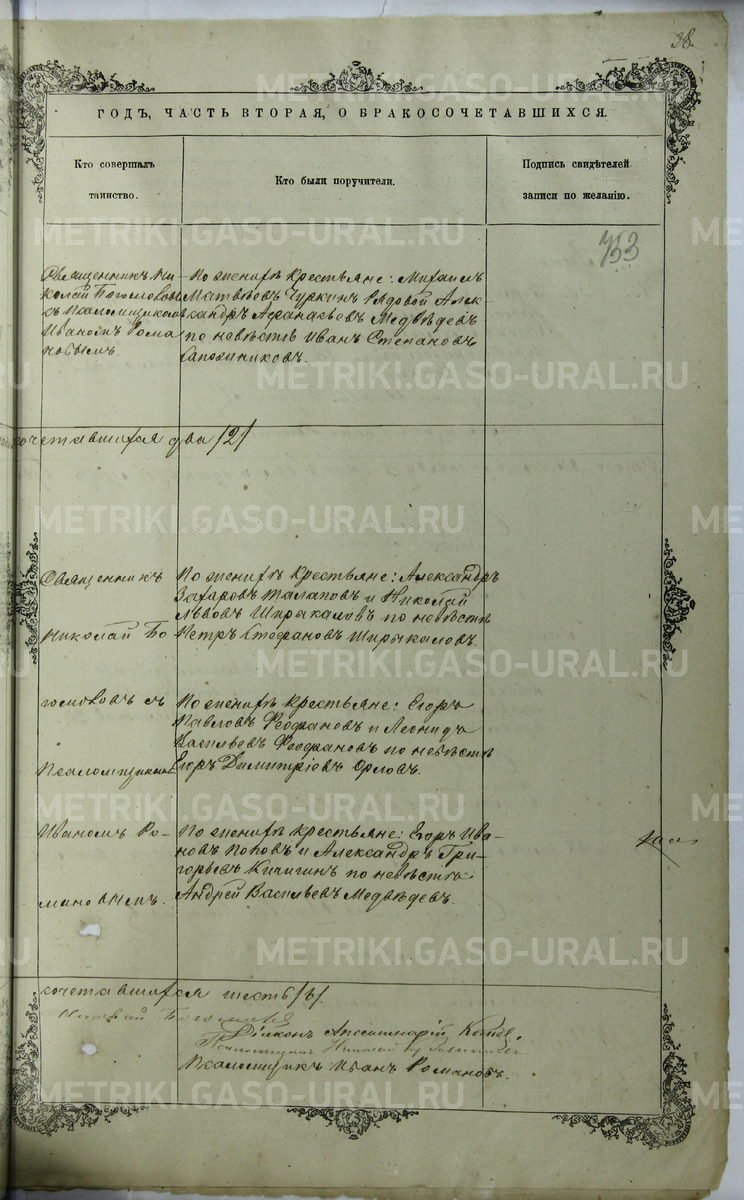 38.
METRIKI.GASO-URAL.RU
ГОДЪ, ЧАСТЬ ВТОРАЯ, О БРАКОСОЧЕТАВШИХСЯ.
Кто совершалъ таинство.
Кто были поручители.
Подпись свидѣтелей записи по желанію.
METRIKI.GASO-URAL.RU
753
Священникъ Ни-
колай Богомоловъ
съ Псаломщикомъ
Иваномъ Рома
новымъ.
По женихѣ Крестьяне: Михаилъ
Матвѣевъ Чуркинъ Рядовой Алек-
сандръ Афанасьевъ Медвѣдевъ
по невѣстѣ Иванъ Степановъ
Сапожниковъ.
METRIKI.GASO-URAL.RU
сочетавшихся два /2/
METRIKI.GASO-URAL.RU
Священникъ
Николай Бо
гомоловъ съ
Псаломщикомъ
Иваномъ Ро-
мановымъ.
По женихѣ Крестьяне: Александръ
Захаровъ Талаповъ и Николай
Львовъ Ширыкаловъ по невѣстѣ
Петръ Стефановъ Ширыкаловъ.
METRIKI.GASO-URAL.RU
По женихѣ Крестьяне: Егоръ
Павловъ Феофановъ и Леонидъ
Васильевъ Феофановъ по невѣстѣ
Егоръ Димитріевъ Орловъ.
METRIKI.GASO-URAL.RU
По женихѣ Крестьяне: Егоръ Ива-
новъ Поповъ и Александръ Гри-
горьевъ Кичигинъ по невѣстѣ
Андрей Васильевъ Медвѣдевъ.
METRIKI.GASO-URAL.RU
сочетавшихся шесть /6/
Николай Богомоловъ
Діаконъ Аполлинарій
Псаломщикъ Николай
Псаломщикъ Иванъ Романовъ.
METRIKI.GASO-URAL.RU